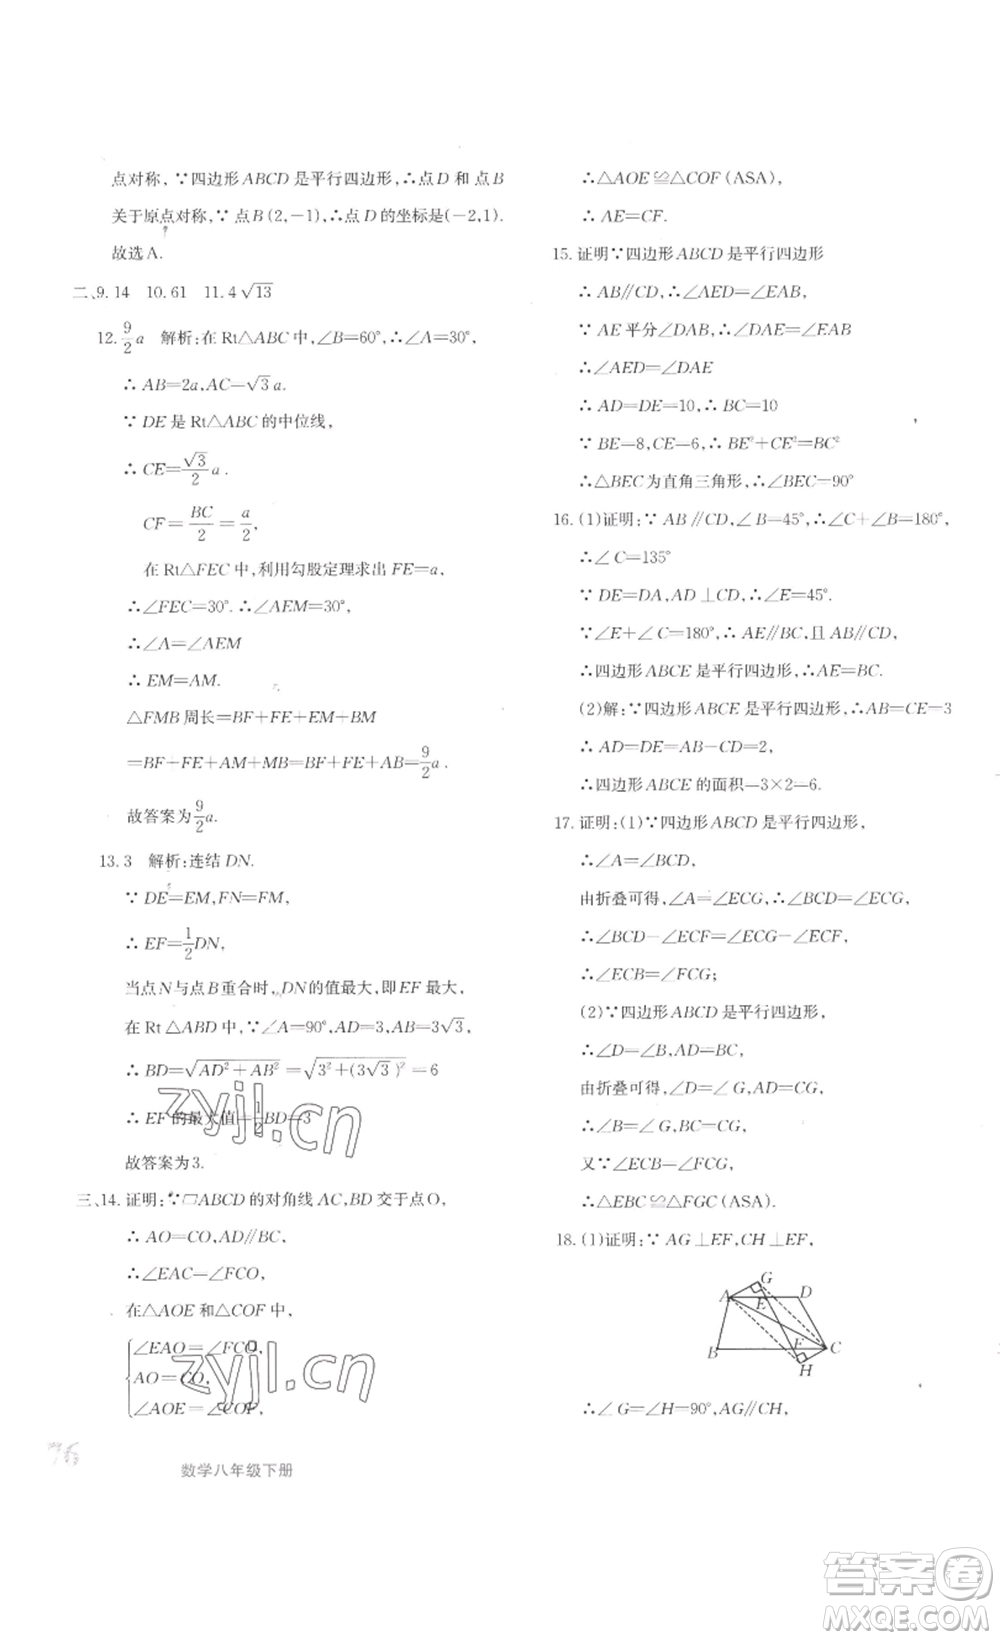 点对称,∵四边形ABCD是平行四边形,∴点D和点B
关于原点对称,∵点B(2,-1),∴点D的坐标是(-2,1).
故选A.
二、9.14 10.61 11.4√13
12.9/2 a 解析:在Rt△ABC中,∠B=60°,∴∠A=30°,
∴AB=2a,AC=√3 a.
∵DE是Rt△ABC的中位线,
∴CE=√3/2 a.
CF=BC/2=a/2,
在Rt△FEC中,利用勾股定理求出FE=a,
∴∠FEC=30°.∴∠AEM=30°,
∴∠A=∠AEM
∴EM=AM.
△FMB周长=BF+FE+EM+BM
=BF+FE+AM+MB=BF+FE+AB=9/2 a.
故答案为9/2 a.
13.3 解析:连结DN.
∵DE=EM,FN=FM,
∴EF=1/2 DN,
当点N与点B重合时,DN的值最大,即EF最大,
在Rt△ABD中,∵∠A=90°,AD=3,AB=3√3,
∴BD=√(AD²+AB²)=√(3²+(3√3)²)=6
∴EF的最大值=1/2 BD=3
故答案为3.
三、14.证明:∵▱ABCD的对角线AC,BD交于点O,
∴AO=CO,AD∥BC,
∴∠EAC=∠FCO,
在△AOE和△COF中,
{∠EAO=∠FCO,
AO=CO,
∠AOE=∠COF,
76
数学八年级下册
∴△AOE≌△COF(ASA)
∴AE=CF.
15.证明∵四边形ABCD是平行四边形
∴AB∥CD,∴∠AED=∠EAB,
∵AE平分∠DAB,∴∠DAE=∠EAB
∴∠AED=∠DAE
∴AD=DE=10,∴BC=10
∵BE=8,CE=6,∴BE²+CE²=BC²
∴△BEC为直角三角形,∴∠BEC=90°
16.(1)证明:∵AB∥CD,∠B=45°,∴∠C+∠B=180°,
∴∠C=135°
∵DE=DA,AD⊥CD,∴∠E=45°.
∵∠E+∠C=180°,∴AE∥BC,且AB∥CD,
∴四边形ABCE是平行四边形,∴AE=BC.
(2)解:∵四边形ABCE是平行四边形,∴AB=CE=3
∴AD=DE=AB-CD=2,
∴四边形ABCE的面积=3×2=6.
17.证明:(1)∵四边形ABCD是平行四边形,
∴∠A=∠BCD,
由折叠可得,∠A=∠ECG,∴∠BCD=∠ECG,
∴∠BCD-∠ECF=∠ECG-∠ECF,
∴∠ECB=∠FCG;
(2)∵四边形ABCD是平行四边形,
∴∠D=∠B,AD=BC,
由折叠可得,∠D=∠G,AD=CG,
∴∠B=∠G,BC=CG,
又∵∠ECB=∠FCG,
∴△EBC≌△FGC(ASA).
18.(1)证明:∵AG⊥EF,CH⊥EF,
G
A E D
B F C
H
∴∠G=∠H=90°,AG∥CH,
zyjl.cn
zyjl.cn
答案卷
MXQE.COM